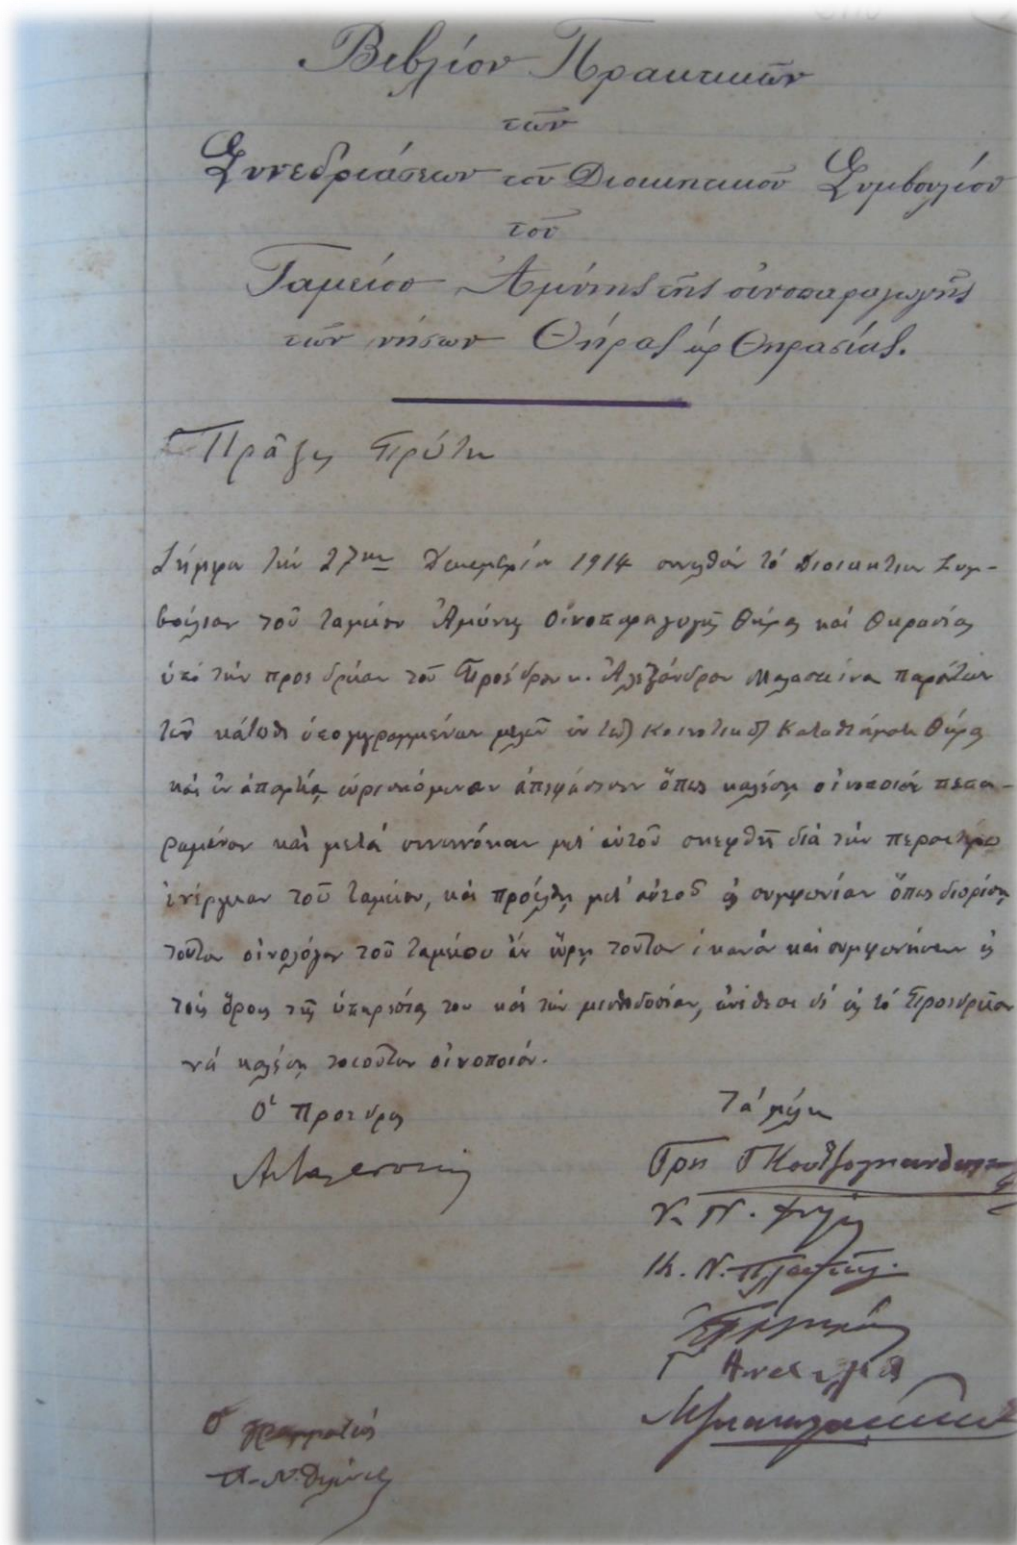 Βιβλίον Πρακτικῶν
τῶν
Συνεδριάσεων τοῦ Διοικητικοῦ Συμβουλίου
τοῦ
Ταμείου Ἀμύνης τῆς οἰνοπαραγωγῆς
τῶν νήσων Θήρας κ Θηρασίας.
Πρᾶξις Πρώτη
Σήμερα τήν 27ην Δεκεμβρίου 1914 συνῆλθόν τό Διοικητικόν Συμ-
βούλιον τοῦ Ταμείου Ἀμύνης Οἰνοπαραγωγῆς Θήρας καί Θηρασίας
ὑπό τήν προεδρείαν τοῦ Προέδρου κ. Ἀλεξάνδρου παρόντων
τῶν κάτωθι ὑπογεγραμμένων μελῶν ἐν τῷ Κοινοτικῷ Καταστήματι Θήρας
καί ἐν ἀπαρτίᾳ εὑρισκόμενον ἀπεφάσισεν ὅπως καλέσῃ οἰνοποιόν πεπει-
ραμένον καί μετά συνεννόησιν μετ' αὐτοῦ σκεφθῇ διά τήν περαιτέρω
ἐνέργειαν τοῦ Ταμείου, καί προέλθῃ μετ' αὐτοῦ εἰς συμφωνίαν ὅπως διορίσῃ
τοῦτον οἰνολόγον τοῦ Ταμείου ἄν εὕρῃ τοῦτον ἱκανόν καί συμφωνήσουν εἰς
τούς ὅρους τῆς ὑπηρεσίας του καί τήν μισθοδοσίαν, ἀνέθεσε δέ εἰς τό Προεδρεῖον
νά καλέσῃ τοιοῦτον οἰνοποιόν.
Ὁ Πρόεδρος
Τά μέλη
Ὁ Γραμματεύς